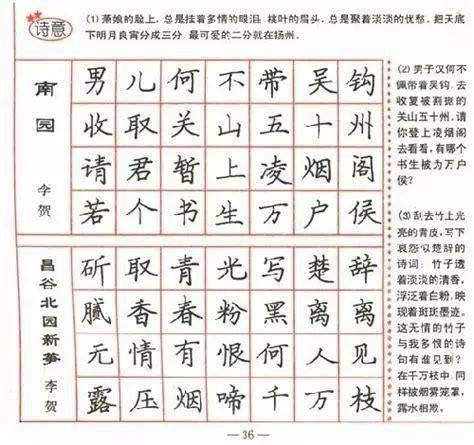 诗意
(1) 萧娘的脸上，总是挂着多情的眼泪，桃叶的眉头，总是聚着淡淡的忧愁。把天底
下明月良宵分成三分，最可爱的二分就在扬州。
南园
李贺
男儿何不带吴钩
收取关山五十州
请君暂上凌烟阁
若个书生万户侯
(2) 男子汉何不
佩带着吴钩，去
收复被割据的
关山五十州？请
你登上凌烟阁
去看看，有哪个
书生被为万户
侯？
昌谷北园新笋
李贺
斫取青光写楚辞
腻香春粉黑离离
元情有恨何人见
露压烟啼千万枝
(3) 刮去竹上光
亮的青皮，写下
哀怨似楚辞的
诗词；竹子透
着淡淡的清香，
浮泛着白粉，映
现着斑斑墨迹。
这无情的竹子
与我多恨的诗
句有谁见到？
在千万枝中，同
样披烟雾笼罩，
露水相欺。
— 36 —